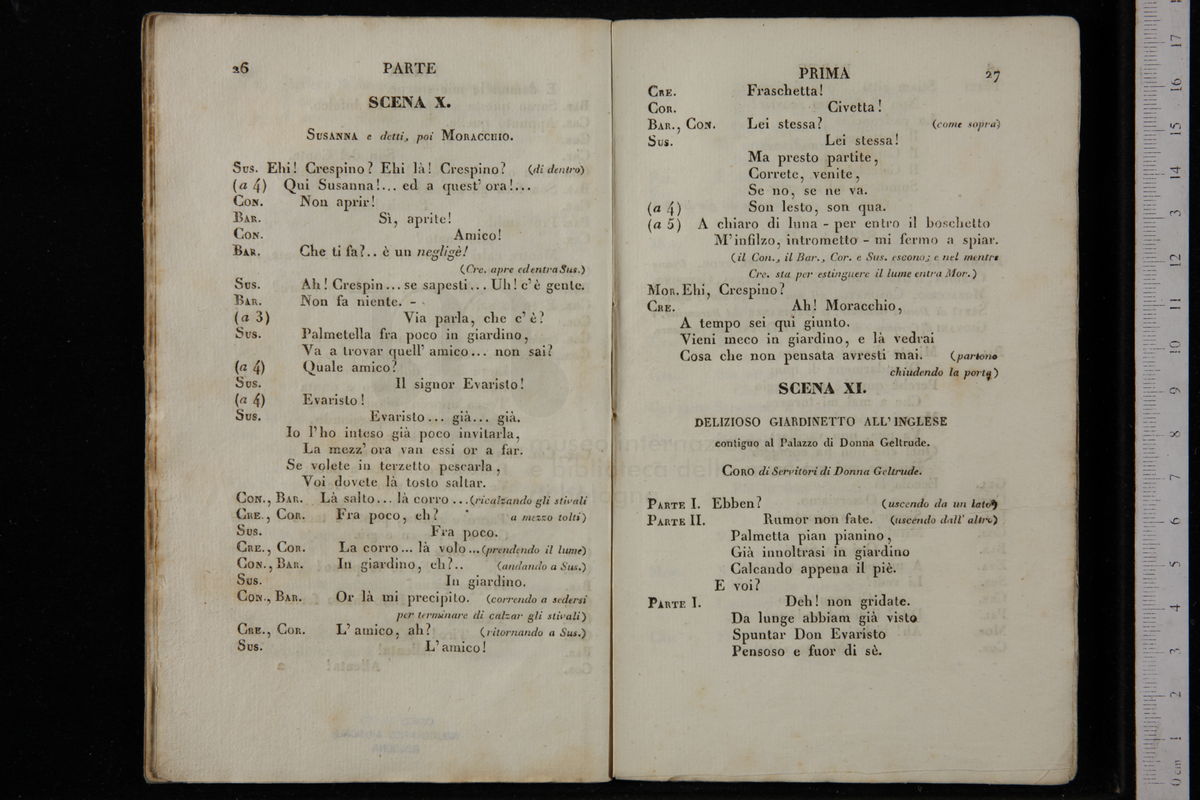 26 PARTE
SCENA X.
SUSANNA e detti, poi MORACCHIO.
SUS. Ehi! Crespino? Ehi là! Crespino? (di dentro)
(a 4) Qui Susanna!... ed a quest' ora!...
CON. Non aprir!
BAR. Sì, aprite!
CON. Amico!
BAR. Che ti fa?.. è un negligè!
(Cre. apre ed entra Sus.)
SUS. Ah! Crespin... se sapesti... Uh! c'è gente.
BAR. Non fa niente. -
(a 3) Via parla, che c' è?
SUS. Palmetella fra poco in giardino,
Va a trovar quell' amico... non sai?
(a 4) Quale amico?
SUS. Il signor Evaristo!
(a 4) Evaristo!
SUS. Evaristo... già... già.
Io l'ho inteso già poco invitarla,
La mezz' ora van essi or a far.
Se volete in terzetto pescarla,
Voi dovete là tosto saltar.
CON., BAR. Là salto... là corro ...(ricalzando gli stivali
CRE., COR. Fra poco, eh? a mezzo tolti)
SUS. Fra poco.
CRE., COR. La corro... là volo...(prendendo il lume)
CON., BAR. In giardino, eh?.. (andando a Sus.)
SUS. In giardino.
CON., BAR. Or là mi precipito. (correndo a sedersi
per terminare di calzar gli stivali)
CRE., COR. L' amico, ah? (ritornando a Sus.)
SUS. L' amico!
PRIMA 27
CRE. Fraschetta!
COR. Civetta!
BAR., CON. Lei stessa? (come sopra)
SUS. Lei stessa!
Ma presto partite,
Correte, venite,
Se no, se ne va.
(a 4) Son lesto, son qua.
(a 5) A chiaro di luna - per entro il boschetto
M'infilzo, intrometto - mi fermo a spiar.
(il Con., il Bar., Cor. e Sus. escono; e nel mentre
Cre. sta per estinguere il lume entra Mor.)
MOR. Ehi, Crespino?
CRE. Ah! Moracchio,
A tempo sei qui giunto.
Vieni meco in giardino, e là vedrai
Cosa che non pensata avresti mai. (partono
chiudendo la porta)
SCENA XI.
DELIZIOSO GIARDINETTO ALL' INGLESE
contiguo al Palazzo di Donna Geltrude.
CORO di Servitori di Donna Geltrude.
PARTE I. Ebben? (uscendo da un lato)
PARTE II. Rumor non fate. (uscendo dall' altro)
Palmetta pian pianino,
Già innoltrasi in giardino
Calcando appena il piè.
E voi?
PARTE I. Deh! non gridate.
Da lunge abbiam già visto
Spuntar Don Evaristo
Pensoso e fuor di sè.